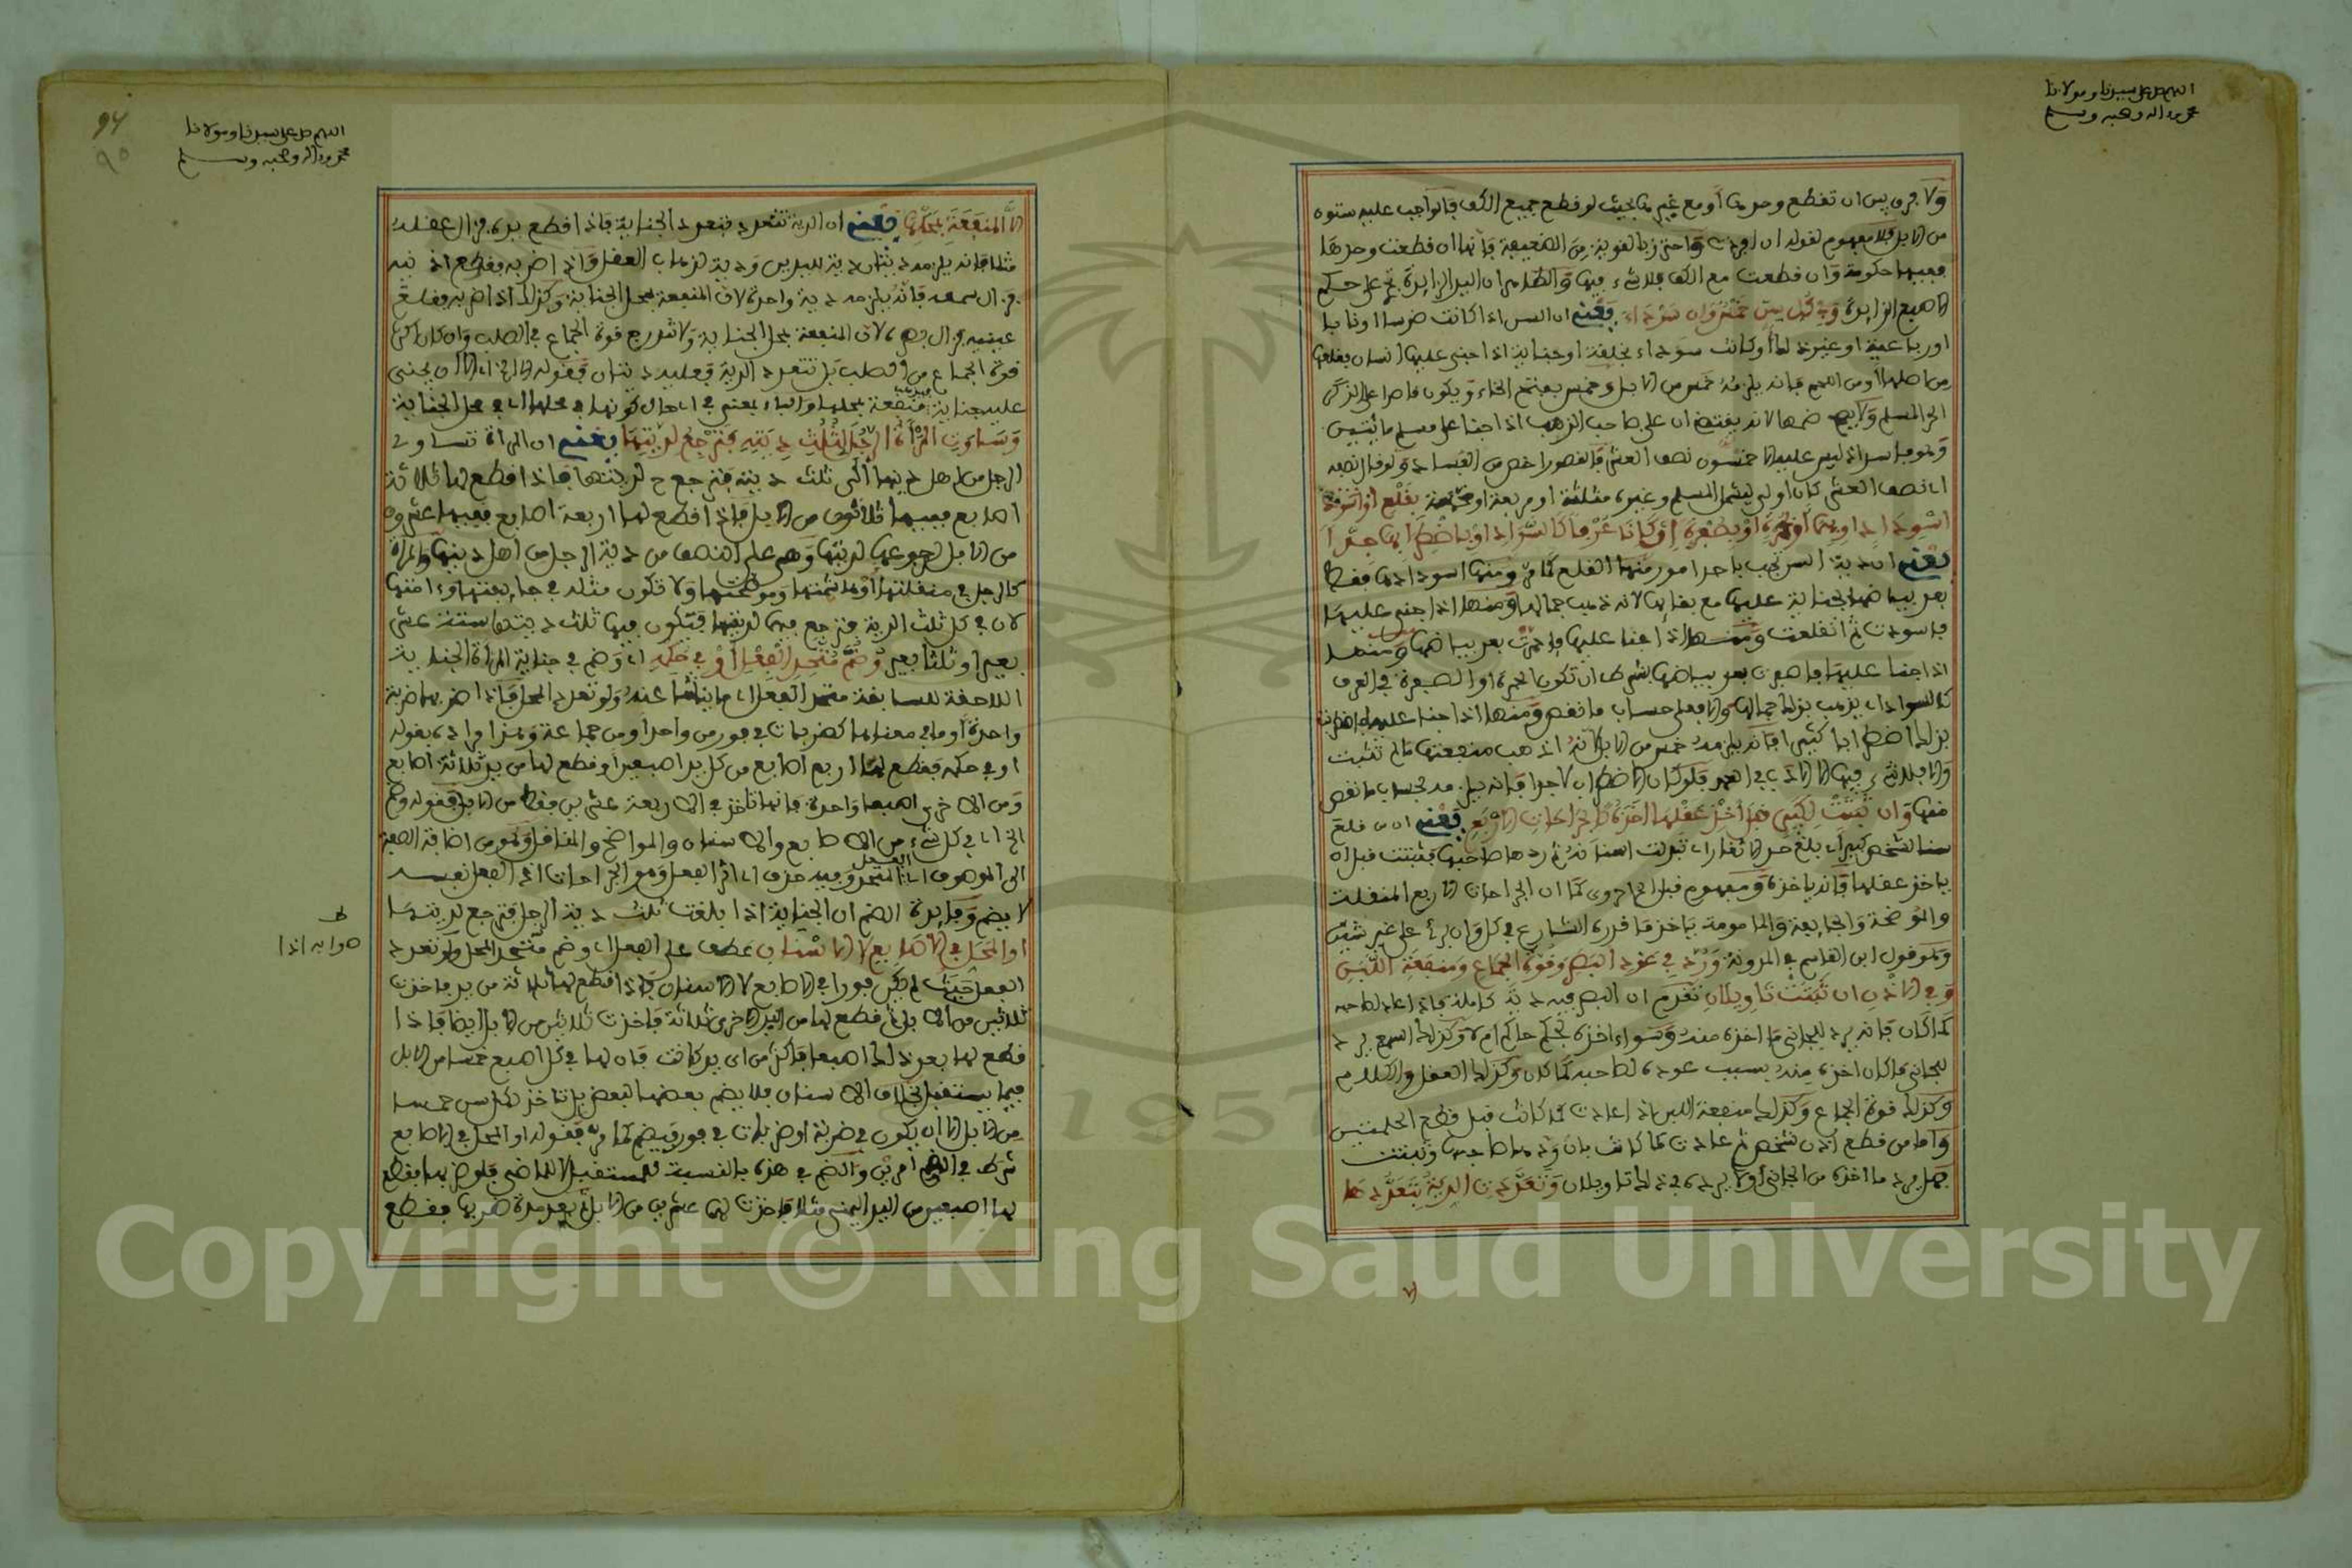 اللهم صل على سيدنا ومولانا
محمد وءاله وصحبه وسلم
ولا فرق بين ان تقطع وحدها أو مع غيرها بحيث لو قطع جميع الكف فالواجب عليه ستون
من الابل فلا مفهوم لقوله ان افردت واحترز بالقوية من الضعيفة فانها ان قطعت وحدها
ففيها حكومة وان قطعت مع الكف فلا شيء فيها والظاهر ان اليد الزايدة تجري على حكم
الاصبع الزايدة وفي كل سن خمس وان سوداء يعني ان السن اذا كانت ضرسا او نابا
او رباعية او غير ذلك او كانت سوداء بخلقة او جناية اذا جنى عليها انسان فقلعها
من اصلها أو من اللحم فانه يلزمه خمس من الابل وخمس بفتح الخاء ويكون قاصرا على الذكر
الحر المسلم ولا يصح ضمها لانه يقتضي ان على صاحب الذهب اذا جنا على مسلم مائتين
وهو فاسد اذ ليس عليه الا خمسون نصف العشر فالقصور اخص من الفساد ولو قال نصف
اى نصف العشر كان اولى ليشمل المسلم وغيره مثلثة او مربعة او مخمسة بقلع أو
اسوداد او بهما أو بحمرة أو بصفرة إن كانا عرفا كالسواد أو باضطرابها جدا
يعني ان دية السن تجب باحد امور منها القلع كما مر ومنها اسودادها فقط
بعد بياضها بجناية عليها مع بقايها لانه اذهب جمالها ومنها اذا جنى عليها
فاسودت ثم انقلعت ومنها اذا جنا عليها فاحمرت بعد بياضها ومنها
اذا جنا عليها فاصفرت بعد بياضها بشرط ان تكون الحمرة او الصفرة في العرف
كالسواد اى يذهب بذلك جمالها والا فعلى حساب ما نقص ومنها اذا جنا عليها فاضطربت
بذلك اضطرابا كثيرا فانه يلزمه خمس من الابل لانه اذهب منفعتها ما لم تثبت
والا فلا شيء فيها الا الادب في العمد فلو كان الاضطراب لا جدا فانه يلزمه بحساب ما نقص
منها وان ثبتت لكبير قبل أخذ عقلها اخذه كالجراحات الاربع يعني ان من قلع
سنا لشخص كبير اى بلغ حد الاثغار اى تبدلت اسنانه ثم ردها صاحبها فثبتت قبل ان
ياخذ عقلها فانه ياخذه ومفهوم قبل احروى كما ان الجراحات الاربع المنقلة
والموضحة والجايفة والمامومة ياخذ ما قدره الشارع في كل وان برئ على غير شين
وهو قول ابن القاسم في المدونة ورد في عود البصر وقوة الجماع ومنفعة اللبن
وفي الاذن ان ثبتت تاويلان تقدم ان البصر فيه دية كاملة فاذا عاد لصاحبه
كما كان فانه يرد للجاني ما اخذه منه وسواء اخذه بحكم حاكم ام لا وكذلك السمع يرد
للجاني ما كان اخذه منه بسبب عوده لصاحبه كما كان وكذلك العقل والكلام
وكذلك قوة الجماع وكذلك منفعة اللبن اذا عادت كما كانت قبل قطع الحلمتين
واما من قطع اذن شخص ثم عادت كما كانت بان ردها صاحبها وثبتت
فهل يرد ما اخذه من الجاني أو لا يرده في ذلك تاويلان وتعددت الدية بتعددها
اللهم صل على سيدنا ومولانا
محمد وءاله وصحبه وسلم
94
٩٥
الا المنفعة بمحلها يعني ان الدية تتعدد بتعدد الجناية فاذا قطع يده فزال عقله
مثلا فانه يلزمه ديتان دية لليدين ودية لذهاب العقل واذا ضربه فقطع اذنيه
فزال سمعه فانه يلزمه دية واحدة لان المنفعة بمحل الجناية وكذلك اذا ضربه فقلع
عينيه فزال بصره لان المنفعة بمحل الجناية ولا تندرج قوة الجماع في الصلب وان كان اكثر
قوة الجماع من الصلب بل تتعدد الدية فعليه ديتان فقوله الا المنفعة اى الا ان يجني
عليه جناية منفعة بمحلها والباء بمعنى في اى حال كونها في محلها اى في محل الجناية
وساوت المرأة الرجل لثلث ديته فترجع لديتها يعني ان المراة تساوي
الرجل من اهل دينها الى ثلث ديته فترجع ح لديتها فاذا قطع لها ثلاثة
اصابع ففيها ثلاثون من الابل فاذا قطع لها اربعة اصابع ففيها عشرون
من الابل لرجوعها لديتها وهي على النصف من دية الرجل من اهل دينها والمراة
كالرجل في منقلتها أو هاشمتها وموضحتها ولا تكون مثله في جايفتها وءامتها
لان في كل ثلث الدية فترجع فيها لديتها فيكون فيها ثلث ديتها ستة عشر
بعيرا وثلثا بعير وضم متحد الفعل أو في حكمه اى وضم في جناية المراة الجناية
اللاحقة للسابقة متحد الفعل اى ما ينشا عنه ولو تعدد المحل فاذا ضربها ضربة
واحدة أو ما في معناها كضربات في فور من واحد او من جماعة وهذا مراده بقوله
او في حكمه فقطع لها اربع اصابع من كل يد اصبعين أو قطع لها من يد ثلاثة اصابع
ومن الاخرى اصبعا واحدة فانها تاخذ في الاربعة عشرين فقط من الابل فقوله وضم
الخ اى في كل شيء من الاصابع والاسنان والمواضح والمناقل وهو من اضافة الصفة
الى الموصوف اى الفعل المتحد وفيه حذف اى اثر الفعل وهو الجراحات اذ الفعل نفسه
لا يضم وفايدة الضم ان الجناية اذا بلغت ثلث دية الرجل فترجع لديتها
او المحل في الاصابع لا الاسنان عطف على الفعل اى وضم متحد المحل ولو تعدد
الفعل حيث لم يكن فورا في الاصابع لا الاسنان فاذا قطع لها ثلاثة من يد فاخذت
ثلاثين من الابل ثم قطع لها من اليد الاخرى ثلاثة فاخذت ثلاثين من الابل ايضا فاذا
قطع لها بعد ذلك اصبعا فاكثر من اى يد كانت فان لها في كل اصبع خمسا من الابل
فيما يستقبل بخلاف الاسنان فلا يضم بعضها لبعض بل تاخذ لكل سن خمسا
من الابل الا ان يكون في ضربة او ضربات في فور فيضم كما مر فقوله او المحل في الاصابع
شرط في الضم امرين والضم في هذه بالنسبة للمستقبل لا للماضي فلو ضربها فقطع
لها اصبعين من اليد اليمنى مثلا فاخذت لهما عشرين من الابل ثم بعد مدة ضربها فقطع
ط
صوابه اذا
Copyright © King Saud University
1957